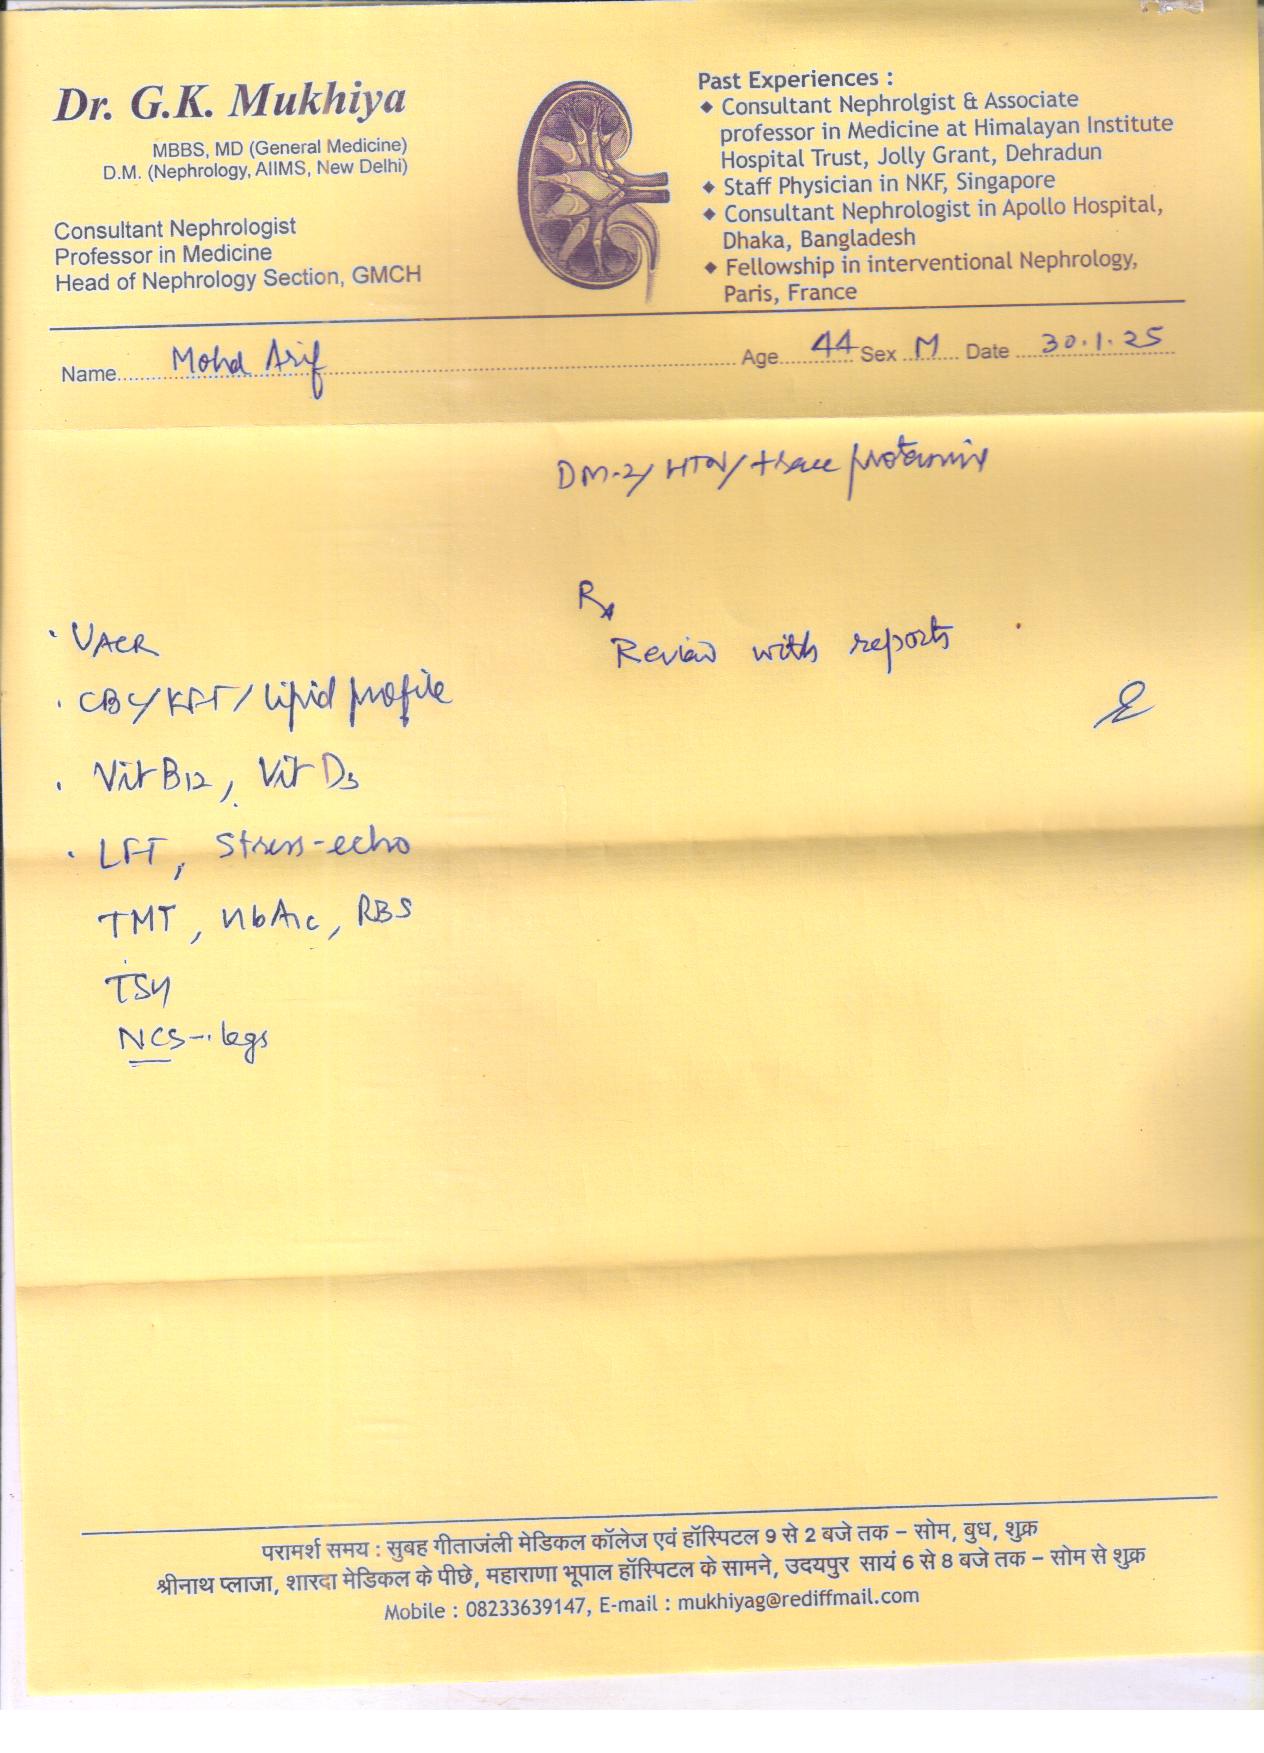 Dr. G.K. Mukhiya
MBBS, MD (General Medicine)
D.M. (Nephrology, AIIMS, New Delhi)
Consultant Nephrologist
Professor in Medicine
Head of Nephrology Section, GMCH
Past Experiences :
◆ Consultant Nephrolgist & Associate
professor in Medicine at Himalayan Institute
Hospital Trust, Jolly Grant, Dehradun
◆ Staff Physician in NKF, Singapore
◆ Consultant Nephrologist in Apollo Hospital,
Dhaka, Bangladesh
◆ Fellowship in interventional Nephrology,
Paris, France
Name Mohd Arif Age 44 Sex M Date 30.1.25
DM-2/ HTN/ trace proteinuria
Rx
Review with reports
· UACR
· CBC/KFT/lipid profile
· Vit B12, Vit D3
· LFT, Stress-echo
TMT, HbA1c, RBS
TSH
NCS - legs
परामर्श समय : सुबह गीताजंली मेडिकल कॉलेज एवं हॉस्पिटल 9 से 2 बजे तक – सोम, बुध, शुक्र
श्रीनाथ प्लाजा, शारदा मेडिकल के पीछे, महाराणा भूपाल हॉस्पिटल के सामने, उदयपुर सायं 6 से 8 बजे तक – सोम से शुक्र
Mobile : 08233639147, E-mail : mukhiyag@rediffmail.com